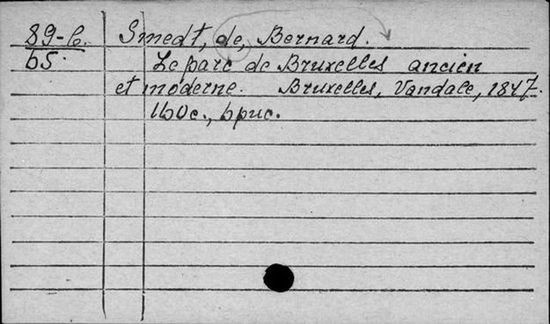 89-6. Smedt, de, Bernard.
65. Le parc de Bruxelles ancien
et moderne. Bruxelles, Vandale, 1847.
160c., 6рис.